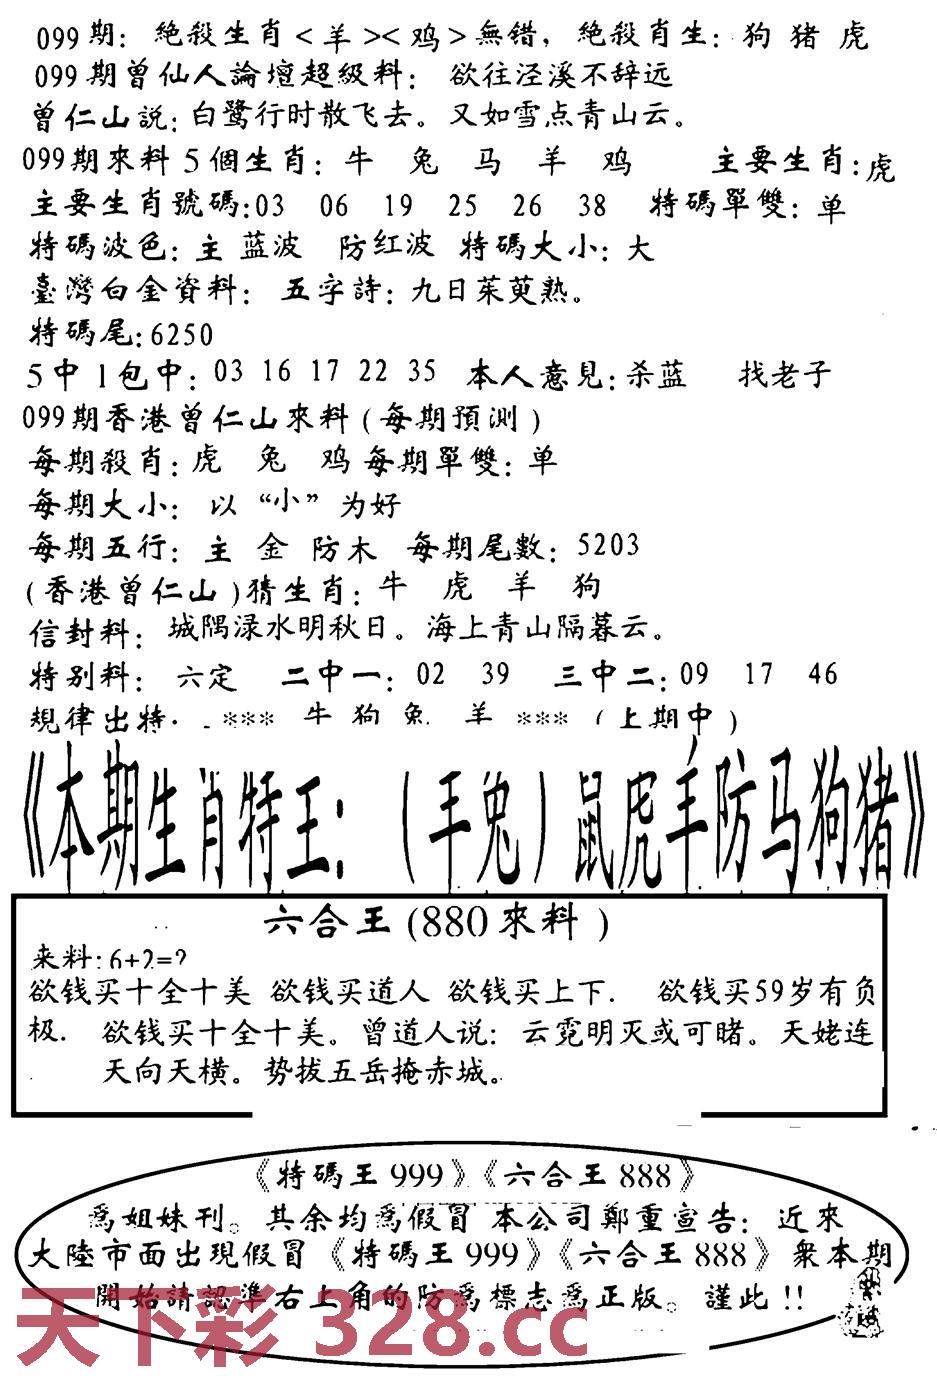 099期：絶殺生肖<羊><鸡>無错，絶殺肖生：狗 猪 虎
099期曾仙人論壇超級料：欲往泾溪不辞远
曾仁山説：白鹭行时散飞去。又如雪点青山云。
099期來料5個生肖：牛 兔 马 羊 鸡 主要生肖：虎
主要生肖號碼：03 06 19 25 26 38 特碼單雙：单
特碼波色：主 蓝波 防红波 特碼大小：大
臺灣白金資料：五字詩：九日茱萸熟。
特碼尾：6250
5中1包中：03 16 17 22 35 本人意見：杀蓝 找老子
099期香港曾仁山來料（每期預測）
每期殺肖：虎 兔 鸡 每期單雙：单
每期大小：以“小”为好
每期五行：主 金 防木 每期尾數：5203
（香港曾仁山）猜生肖：牛 虎 羊 狗
信封料：城隅渌水明秋日。海上青山隔暮云。
特别料：六定 二中一：02 39 三中二：09 17 46
規律出特. *** 牛 狗 兔 羊 ***（上期中）
《本期生肖特王：（羊兔）鼠虎羊防马狗猪》
六合王（880來料）
来料：6+2=?
欲钱买十全十美 欲钱买道人 欲钱买上下. 欲钱买59岁有负
极. 欲钱买十全十美。曾道人说：云霓明灭或可睹。天姥连
天向天横。势拔五岳掩赤城。
《特碼王999》《六合王888》
爲姐妹刊。其余均爲假冒 本公司鄭重宣告：近來
大陸市面出現假冒《特碼王999》《六合王888》衆本期
開始請認準右上角的防爲標志爲正版。謹此!!
天下彩 328.cc